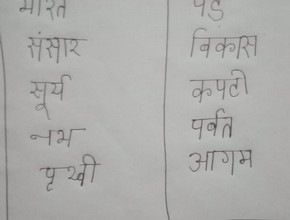 भारत
संसार
सूर्य
नभ
पृथ्वी
विकास
कपटी
पर्वत
आगम